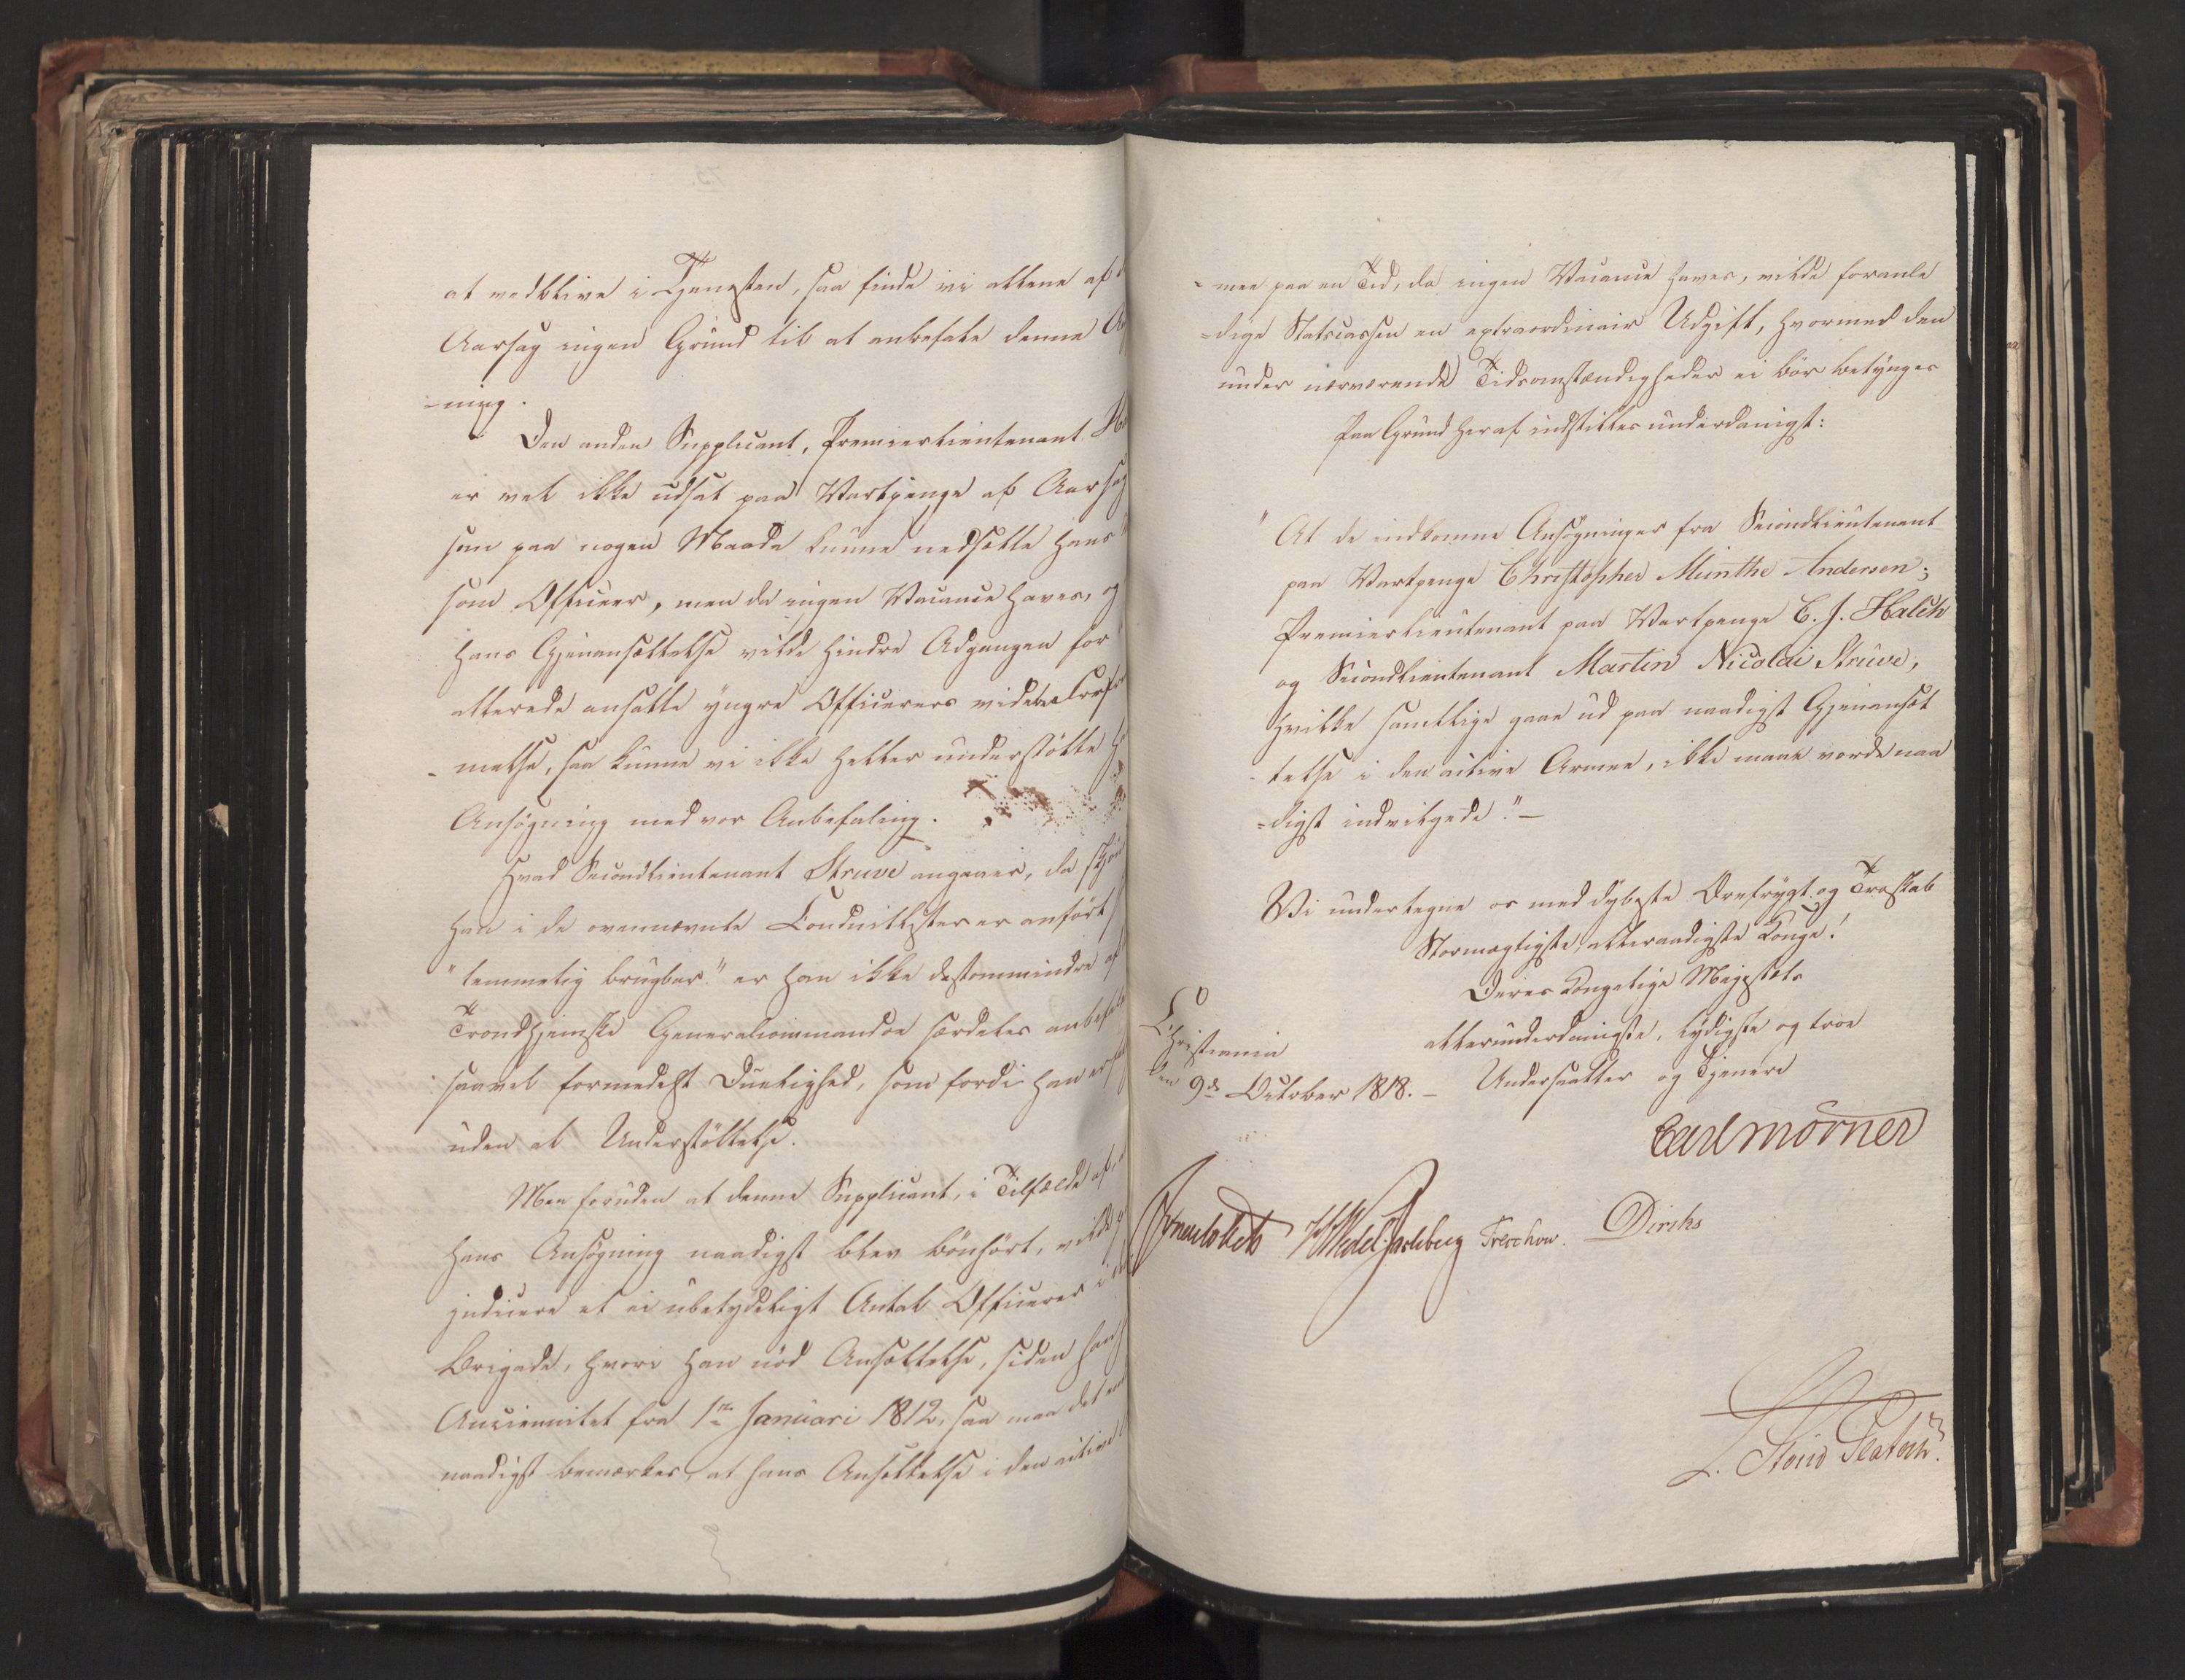 at vedblive i Tjenesten, saa finde vi allene af
Aarsag ingen Grund til at anbefale denne
-ning.
Den anden Supplicant, Premierlieutenant
er vel ikke udsat paa Vartpenge af Aarsag
som paa nogen Maade kunne nedsætte hans
som Officeer, men da ingen Vacance haves, og
hans Gjenansættelse vilde hindre Adgangen for
allerede ansatte yngre Officerers videre
-melse, saa kunne vi ikke heller understøtte
Ansøgning med vor Anbefaling.
Hvad Secondlieutenant Struve angaaer, da
han i de ovennævnte Conduitlister er anført
"temmelig brugbar" er han ikke destomindre af
Trondhjemske Generalcommandoe særdeles
saavel formedelst Duelighed, som fordi han er
uden al Understøttelse.
Men foruden at denne Supplicant, i Tilfælde af,
hans Ansøgning naadigst blev bønhørt, vilde
judicere et ei ubetydeligt Antal Officerer i
Brigade, hvori han nød Ansættelse, siden han
Anciennitet fra 1ste Januari 1812, saa maa det
naadigst bemærkes, at hans Ansættelse i den active
-mee paa en Tid, da ingen Vacance haves, vilde foranle
-dige Statscassen en extraordinair Udgift, hvormed den
under nærværende Tidsomstændigheder ei bør betynges
Paa Grund heraf indstilles underdanigst:
"At de indkomne Ansøgninger fra Secondlieutenant
paa Vartpenge Christopher Munthe Andersen;
Premierlieutenant paa Vartpenge C. J. Halck
og Secondlieutenant Martin Nicolai Struve,
hvilke samtlige gaae ud paa naadigst Gjenansæt
-telse i den active Armee, ikke maae vorde naa
-digst indvilgede." —
Vi undertegne os med dybeste Ærefrygt og Troskab
Stormægtigste, allernaadigste Konge!
Deres Kongelige Majestæts
allerunderdanigste, lydigste og troe
Christiania
den 9de October 1818. — Undersaatter og Tjenere
Carl Mörner
Sommerhielm HWedel Jarlsberg Treschow. Diriks
L. Stoud Platou